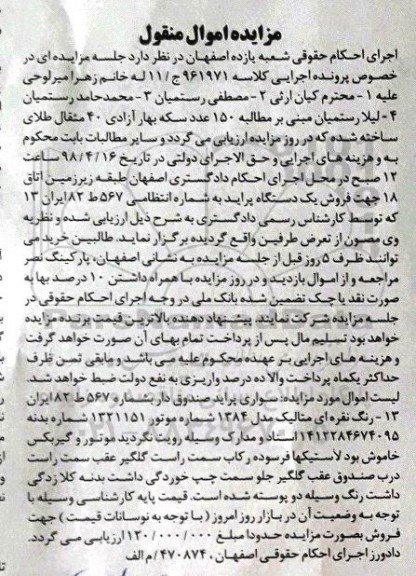 مزایده اموال منقول
اجرای احکام حقوقی شعبه یازده اصفهان در نظر دارد جلسه مزایده ای در
خصوص پرونده اجرایی کلاسه ۹۶۱۹۷۱ ج/۱۱ له خانم زهرا میرلوحی
علیه ۱- محترم کیان ارثی ۲- مصطفی رستمیان ۳- محمدحامد رستمیان
۴- لیلا رستمیان مبنی بر مطالبه ۱۵۰ عدد سکه بهار آزادی ۴۰ مثقال طلای
ساخته شده که در روز مزایده ارزیابی می گردد و سایر مطالبات بابت محکوم
به و هزینه های اجرایی و حق الاجرای دولتی در تاریخ ۹۸/۴/۱۶ ساعت
۱۲ صبح در محل اجرای احکام دادگستری اصفهان طبقه زیرزمین اتاق
۱۸ جهت فروش یک دستگاه پراید به شماره انتظامی ۵۶۷ ط ۸۲ ایران ۱۳
که توسط کارشناس رسمی دادگستری به شرح ذیل ارزیابی شده و نظریه
وی مصون از تعرض طرفین واقع گردیده برگزار نماید. طالبین خرید می
توانند ظرف ۵ روز قبل از جلسه مزایده به نشانی اصفهان، پارکینگ نصر
مراجعه و از اموال بازدید و در روز مزایده با همراه داشتن ۱۰ درصد بها به
صورت نقد یا چک تضمین شده بانک ملی در وجه اجرای احکام حقوقی در
جلسه مزایده شرکت نمایند. پیشنهاد دهنده بالاترین قیمت برنده مزایده
خواهد بود تسلیم مال پس از پرداخت تمام بهای آن صورت خواهد گرفت
و هزینه های اجرایی بر عهده محکوم علیه می باشد و مابقی ثمن ظرف
حداکثر یکماه پرداخت والا ده درصد واریزی به نفع دولت ضبط خواهد شد.
لیست اموال مورد مزایده: سواری پراید صندوق دار بشماره ۵۶۷ ط ۸۲ ایران
۱۳- رنگ نقره ای متالیک مدل ۱۳۸۴ شماره موتور ۱۳۲۱۱۵۱ شماره بدنه
۱۴۱۲۲۸۴۶۷۴۰۹۵ اسناد و مدارک وسیله رویت نگردید موتور و گیربکس
خاموش بود لاستیکها فرسوده رکاب سمت راست گلگیر عقب سمت راست
درب صندوق عقب گلگیر جلو سمت چپ خوردگی داشت بدنه کلا زدگی
داشت رنگ وسیله دو پوسته شده است. قیمت پایه کارشناسی وسیله با
توجه به وضعیت آن در بازار روز امروز (با توجه به نوسانات قیمت) جهت
فروش بصورت مزایده حدودا مبلغ ۱۲۰/۰۰۰/۰۰۰ ارزیابی می گردد.
دادورز اجرای احکام حقوقی اصفهان ۴۷۰۸۷۴۰/م الف